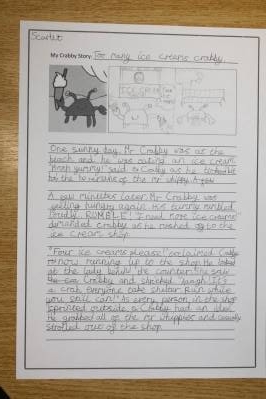 Scarlet
My Crabby Story: Too many ice creams crabby.
ICE CREAM
One sunny day, Mr Crabby was at the
beach and he was eating an ice cream
"Mmm yummy" said Mr Crabby as he
to the of the Mr Whippy.
A few minutes later, Mr Crabby was
getting hungry again. His tummy rumbled
loudly. RUMBLE! "I need more ice creams"
demanded crabby as he rushed to the
ice cream shop.
"Four ice creams please!" exclaimed Crabby
now running up to the shop. He
at the lady behind the counter. She saw
Crabby and
a crab everyone take shelter. Run while
you still can!" As every person in the shop
sprinted outside Crabby had an idea.
He grabbed all of the Mr Whippies and
strolled out of the shop.